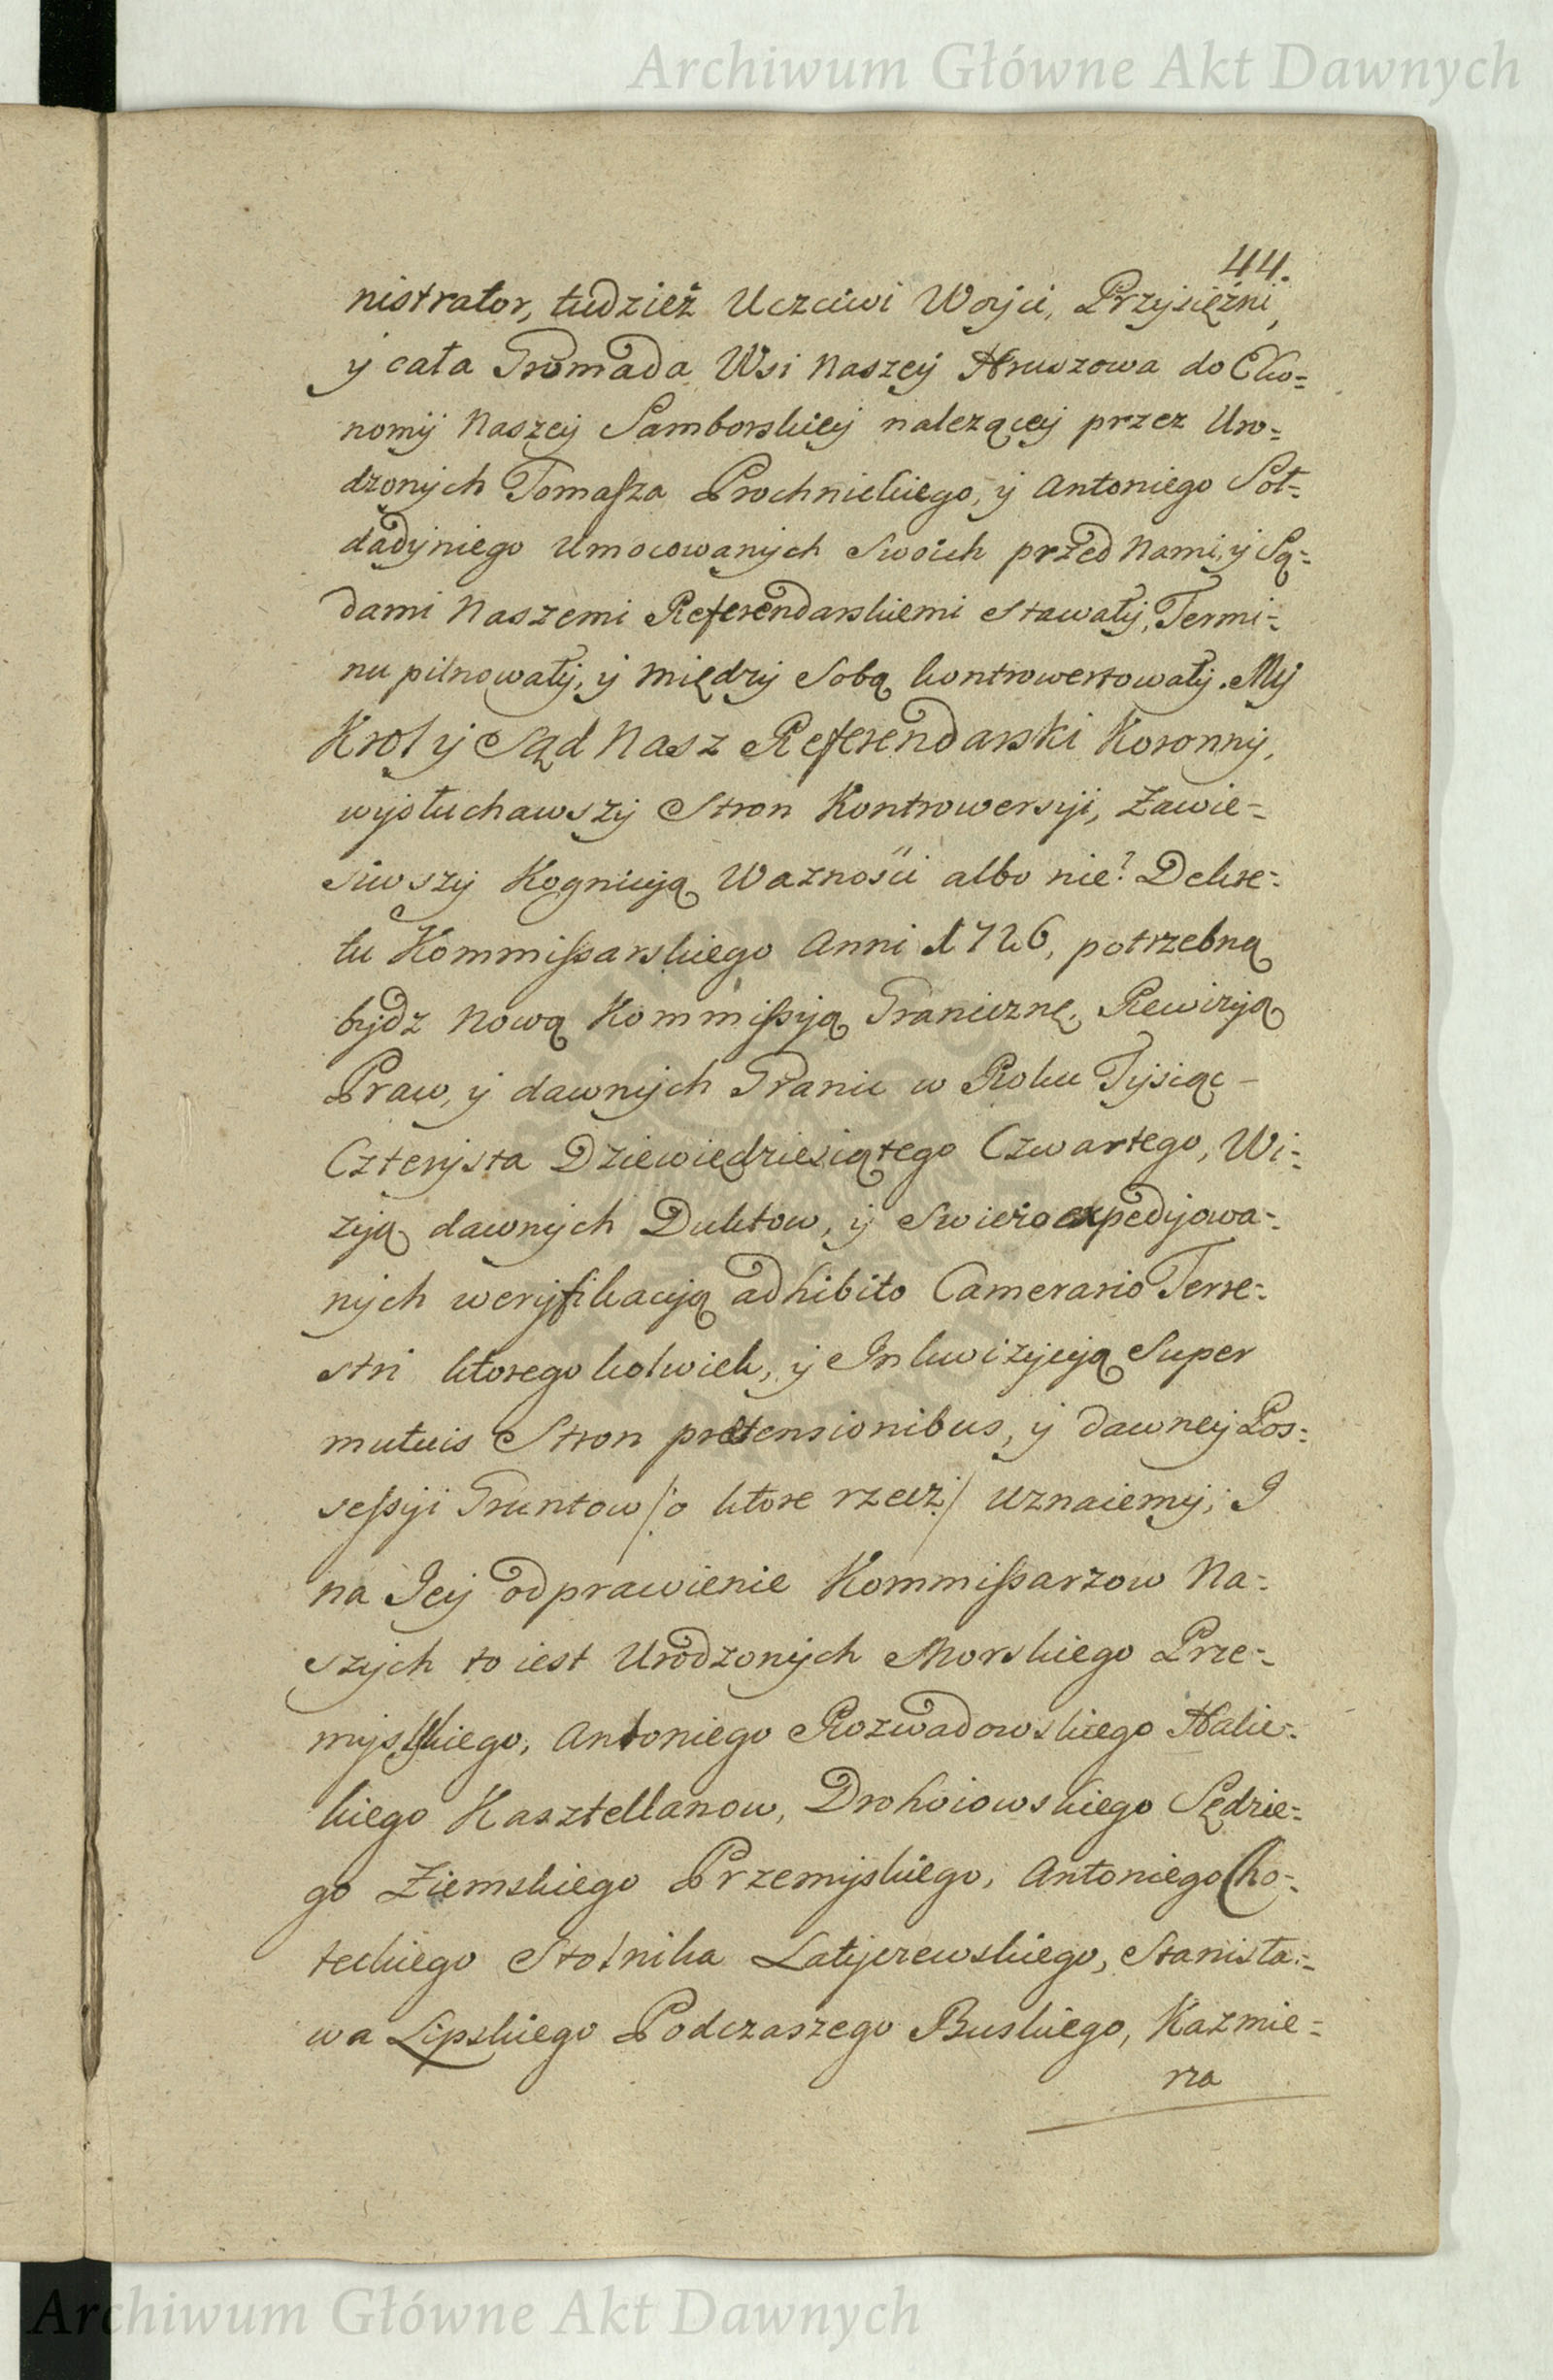 Archiwum Główne Akt Dawnych
44.
nistrator, tudzież Uczciwi Woyci, Przysiężni,
y cała Gromada Wsi Naszey Hruszowa do Eko=
nomij Naszey Samborskiey nalezącey przez Uro=
dzonych Tomaſza Prochnickiego, y Antoniego Soł=
dadyniego Umocowanych Swoich przed Nami, y Są=
dami Naszemi Referendarskiemi Stawały, Termi=
nu pilnowały, y między Sobą kontrowertowały. My
Krol y Sąd Nasz Referendarski Koronny,
wysłuchawszy Stron Kontrowersyi, Zawie=
siwszy Kognicyą Waznosci albo nie? Dekre=
tu Kommiſsarskiego Anni 1726, potrzebną
bydz Nową Kommiſsyją Granicznę, Rewizyą
Praw, y dawnych Granic w Roku Tysiąc
Czterysta Dziewiędziesiątego Czwartego, Wi=
zyą dawnych Duktow, y Swiezo expedyowa=
nych weryfikacyą adhibito Camerario Terre=
stri ktoregokolwiek, y Inkwizycyą Super
mutuis Stron prætensionibus, y dawney Pos=
seſsyi Gruntow /: o ktore rzecz :/ Uznaiemy; I
na Jey odprawienie Kommiſsarzow Na=
szych to iest Urodzonych Morskiego Prze=
myskiego, Antoniego Rozwadowskiego Halic=
kiego Kasztellanow, Drohoiowskiego Sędzie=
go Ziemskiego Przemyskiego, Antoniego Cho=
teckiego Stolnika Latyczewskiego, Stanisła=
wa Lipskiego Podczaszego Buskiego, Kazmie=
rza
Archiwum Główne Akt Dawnych